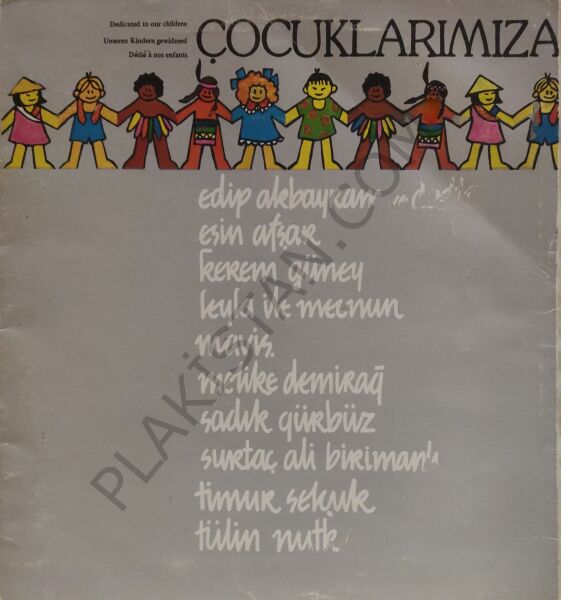 Dedicated to our children
Unseren Kindern gewidmed
Dédié à nos enfants
ÇOCUKLARIMIZA
edip akbayram ve dostlar
esin afşar
kerem güney
leyla ile mecnun
maviş
melike demirağ
sadık gürbüz
surtaç ali
timur selçuk
tülin
PLAKİSTAN.COM